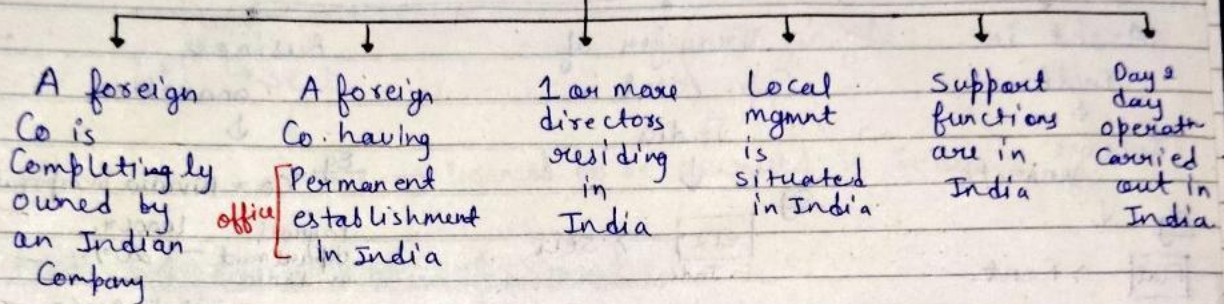 A foreign
Co is
Completingly
owned by
an Indian
Company
A foreign
Co. having
office
Permanent
establishment
In India
1 or more
directors
residing
in
India
Local
mgmnt
is
situated
in India
Support
functions
are in
India
Day 2
day
operatn
carried
out in
India